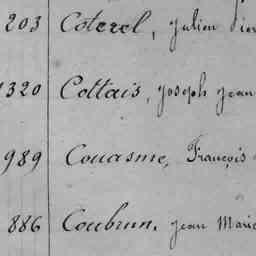 203 Coterel, Julien Pier
1320 Collais, Joseph Jean
989 Couasme, François
886 Coubrun, Jean Marie